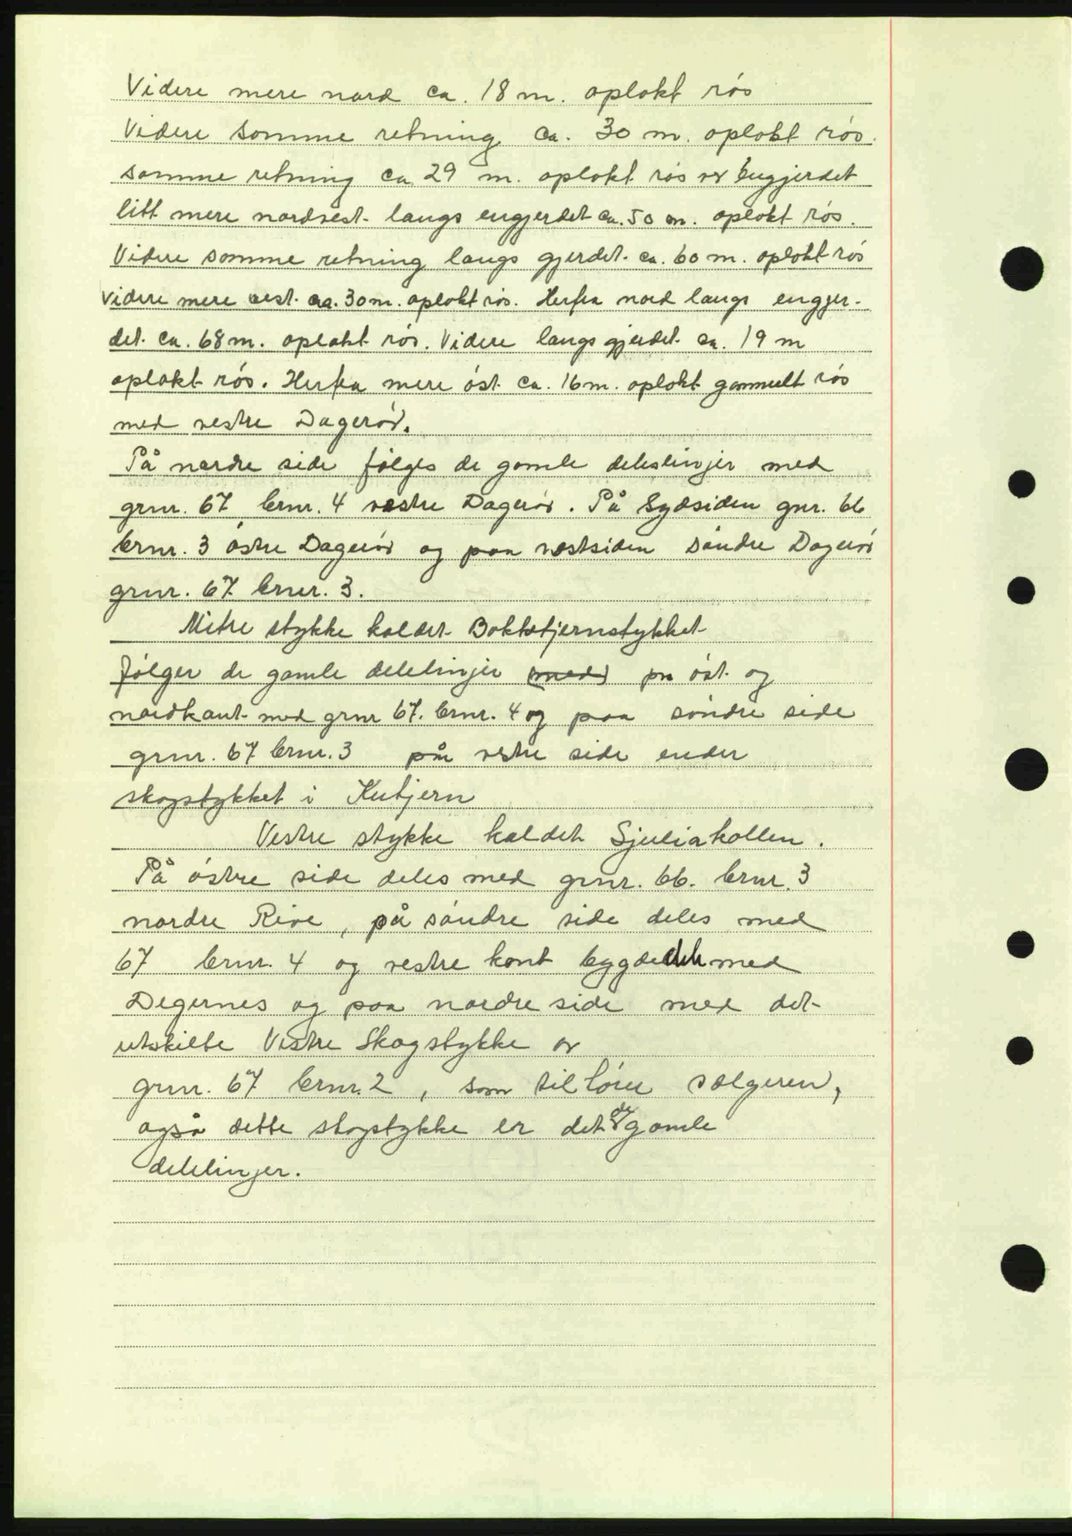 Videre mere nord ca. 18 m. oplokt rós
Videre somme retning ca. 30 m. oplokt rós.
somme retning ca 29 m. oplokt rós ve engjerdet
litt mere nordvest langs engjerdet ca. 50 m. oplokt rós.
Videre somme retning langs gjerdet ca. 60 m. oplokt rós
videre mere vest ca. 30 m. oplokt rós. Herfra nord langs engjer-
det ca. 68 m. oplokt rós. Videre langs gjerdet ca. 19 m
oplokt rós. Herfra mere óst ca. 16 m. oplokt gammelt rós
med vestre Dagerór.
På nordre side følges de gamle delelinjer med
grnr. 67 brnr. 4 vestre Dagerór. På Sydsiden gnr. 66
brnr. 3 óstre Dagerór og paa vestsiden sóndre Dagerór
grnr. 67 brnr. 3.
Mitre stykke kaldet Bokketjernstykket
følger de gamle delelinjer (med) pa óst og
nordkant med grnr 67. brnr. 4 og paa sóndre side
grnr. 67 brnr. 3 på vestre side ender
skogstykket i Kutjern
Vestre stykke kaldet Sjuliakollen.
På óstre side deles med grnr. 66. brnr. 3
nordre Rive, på sóndre side deles med
67 brnr. 4 og vestre kant bygdedele med
Degernes og paa nordre side med det
utskilte Vestre Skogstykke av
grnr. 67 brnr. 2, som tilhórer sælgeren,
også dette skogstykke er det de gamle
delelinjer.